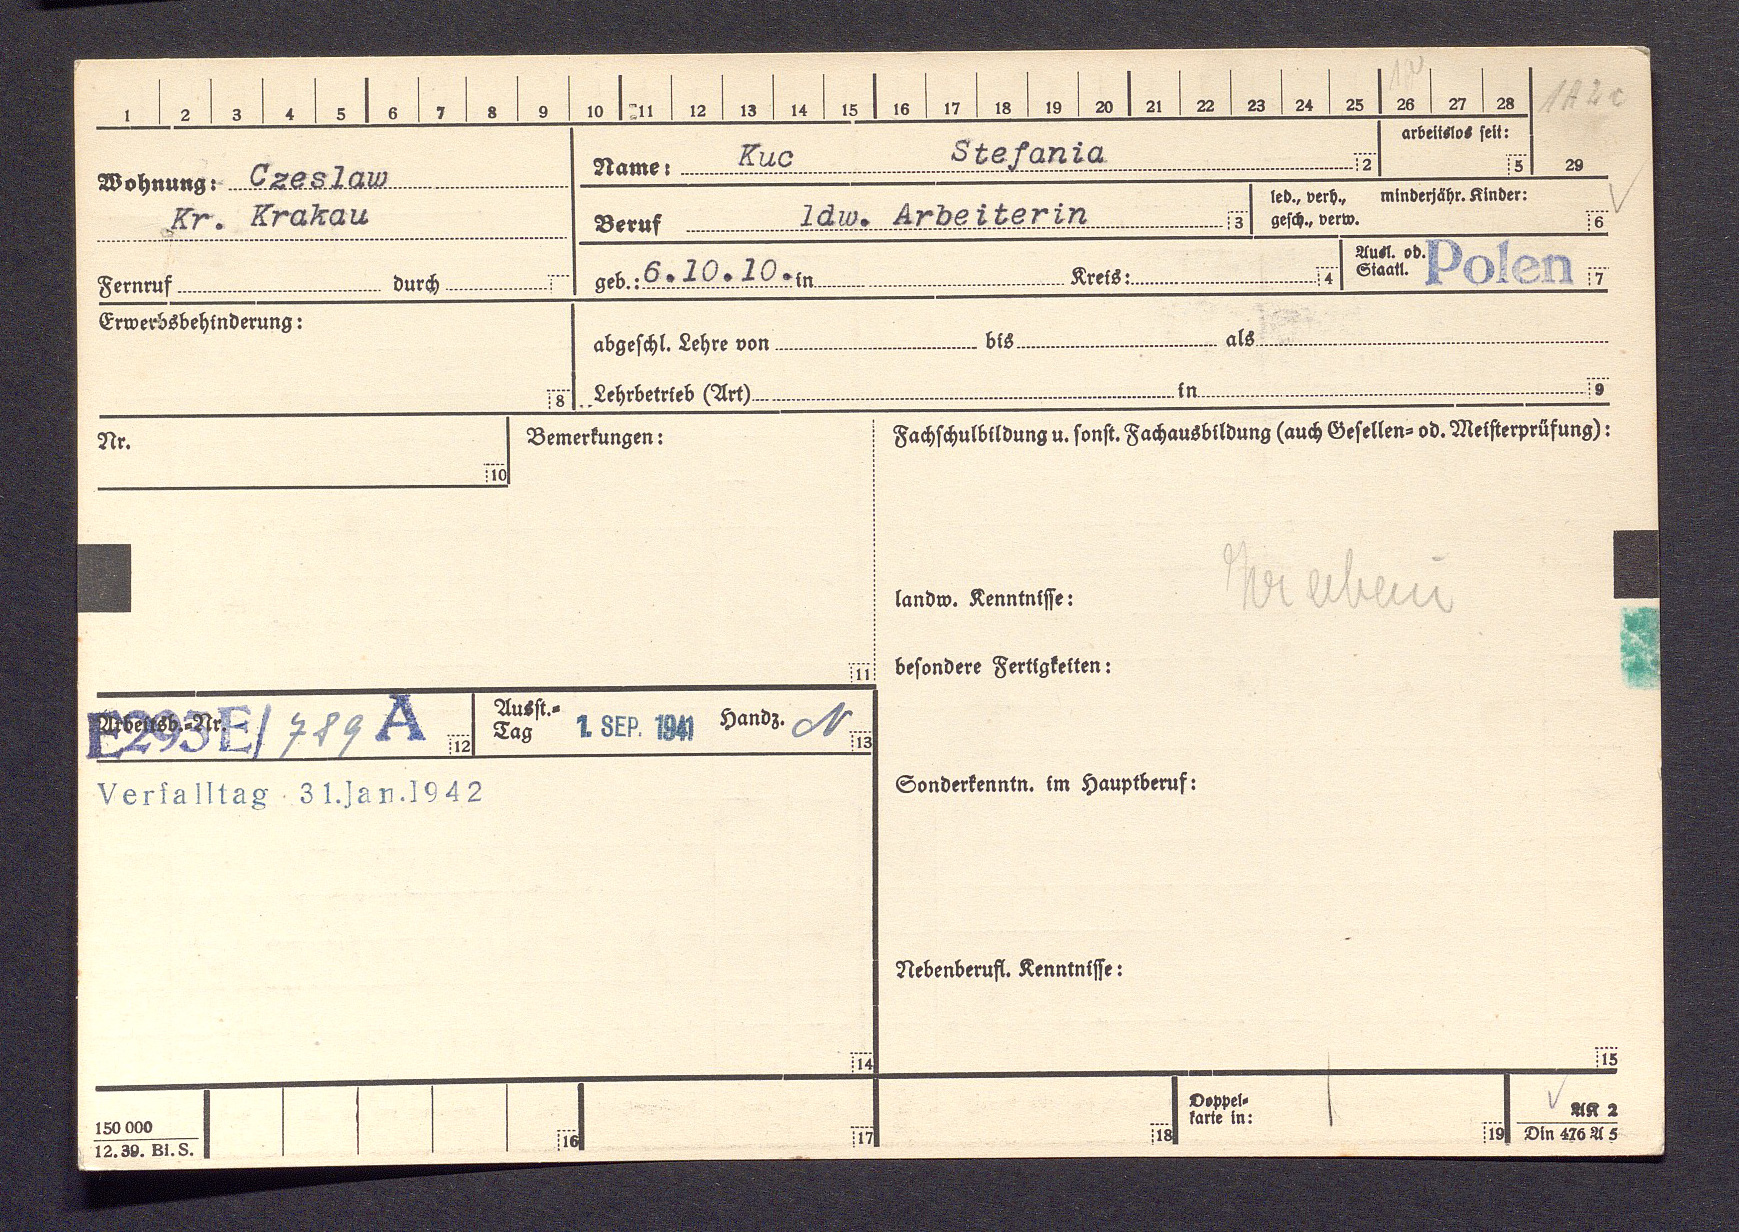 1 2 3 4 5 6 7 8 9 10 11 12 13 14 15 16 17 18 19 20 21 22 23 24 25 26 27 28
1A2c
29
Wohnung: Czeslaw
Kr. Krakau
Fernruf durch
Name: Kuc Stefania 2
arbeitslos seit:
5
Beruf ldw. Arbeiterin 3
led., verh., minderjähr. Kinder:
gesch., verw. 6
geb.: 6.10.10. in Kreis: 4
Ausl. od.
Staatl. Polen 7
Erwerbsbehinderung:
8
abgeschl. Lehre von bis als
Lehrbetrieb (Art) in 9
Nr.
10
Bemerkungen:
11
Fachschulbildung u. sonst. Fachausbildung (auch Gesellen= od. Meisterprüfung):
landw. Kenntnisse:
besondere Fertigkeiten:
Arbeitsb.-Nr.
E293E/789 A 12
Ausst.=
Tag 1. SEP. 1941 Handz. N 13
Verfalltag 31.Jan.1942
14
Sonderkenntn. im Hauptberuf:
Nebenberufl. Kenntnisse:
15
150 000
12. 39. Bl. S.
16
17
18
Doppel=
karte in:
19
AK 2
Din 476 A 5